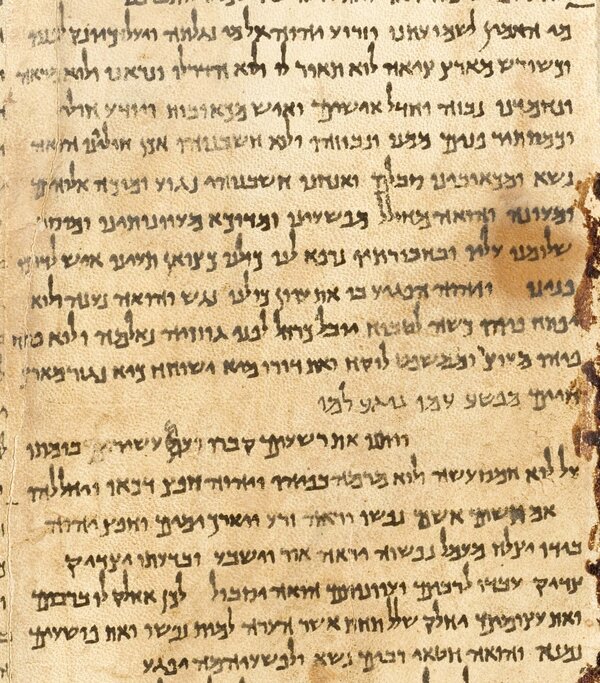 מי האמין לשמועתנו וזרוע יהוה אל מי נגלתה ויעל כיונק לפניו
וכשורש מארץ ציאה לוא תואר לו ולא הדר לו ונראנו ולוא מראה
ונחמדנו נבזה וחדל אישים ואיש מכאובות ויודע חולי
וכמסתיר פנים ממנו ונבוזהו ולוא חשבנוהו אכן חוליינו הואה
נשא ומכאובינו סבלם ואנחנו חשבנוהו נגוע ומוכה אלוהים
ומעונה והואה מחולל מפשעינו ומדוכא מעוונותינו ומוסר
שלומנו עליו ובחבורתיו נרפא לנו כולנו כצואן תעינו איש לדרכו
פנינו ויהוה הפגיע בו את עוון כולנו נגש והואה נענה ולוא
יפתח פיהו כשה לטבוח יובל כרחל לפני גוזזיה נאלמה ולוא פתח
פיהו מעוצר וממשפט לוקח ואת דורו מיא ישוחח כיא נגזר מארץ
חיים מפשע עמו נוגע למו
ויתנו את רשעים קברו ועם עשיר בומתו
על לוא חמס עשה ולוא מרמה בפיהו ויהוה חפץ דכאו ויחללהו
אם תשים אשם נפשו יראה זרע ויארך ימים וחפץ יהוה
בידו יצלח מעמל נפשוה יראה אור וישבע ובדעתו יצדיק
צדיק עבדו לרבים ועוונותם הואה יסבול לכן אחלק לו ברבים
ואת עצומים יחלק שלל תחת אשר הערה למות נפשו ואת פושעים
נמנה והואה חטאי רבים נשא ולפשעיהמה יפגע